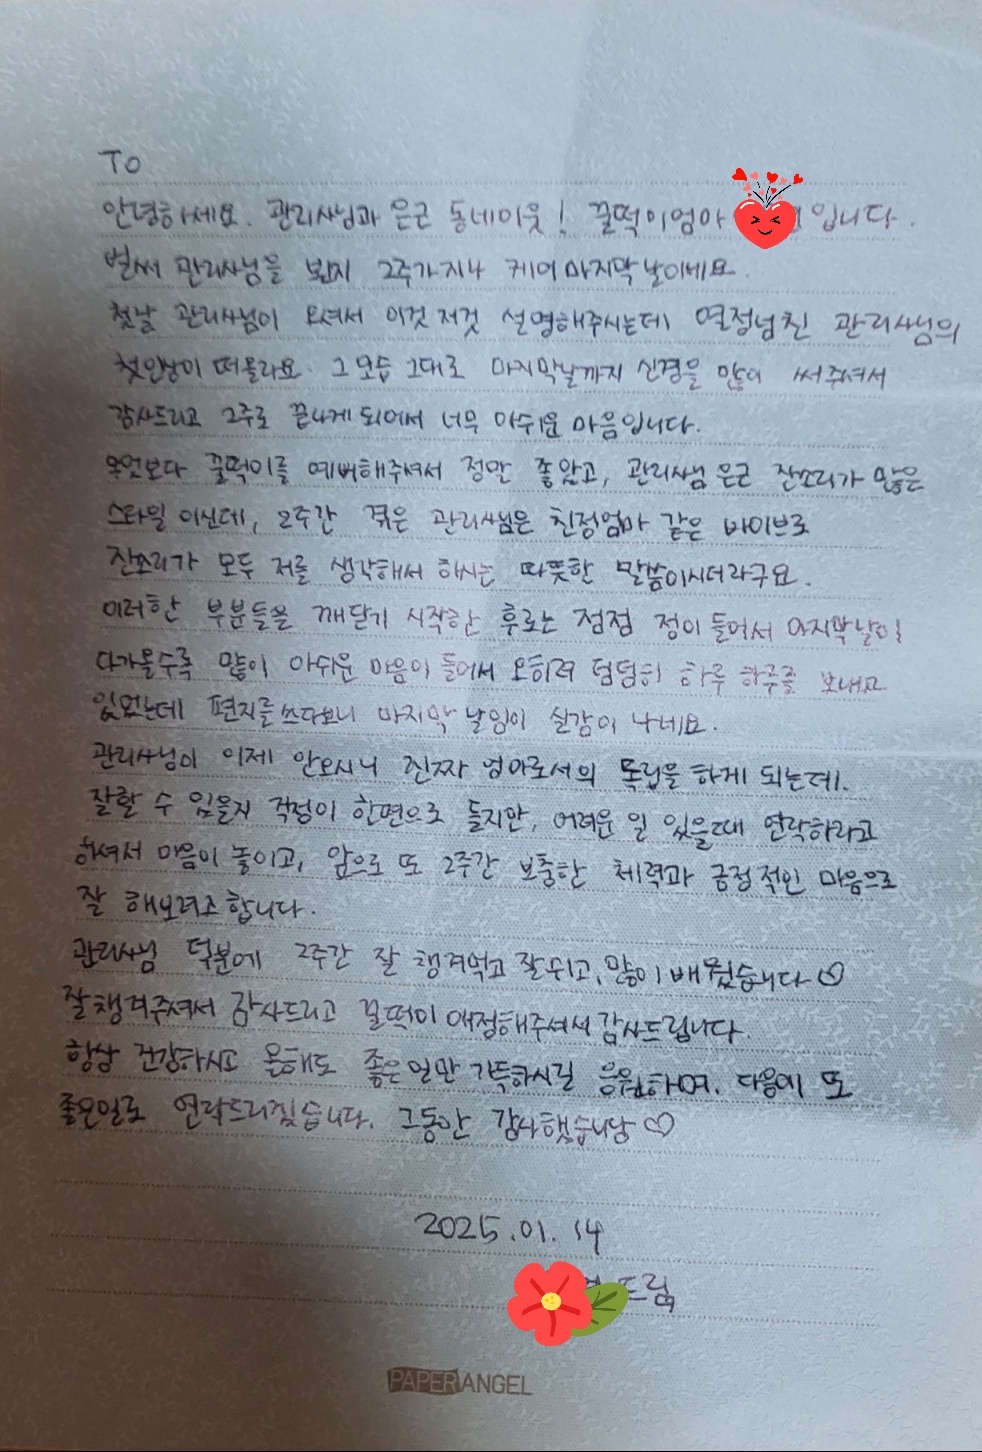 TO
안녕하세요. 관리사님과 은근 동네이웃! 꿀떡이엄마 입니다.
벌써 관리사님을 뵌지 2주가 지나 케어 마지막날이네요.
첫날 관리사님이 오셔서 이것저것 설명해주시는데 열정넘친 관리사님의
첫인상이 떠올라요. 그 모습 그대로 마지막날까지 신경을 많이 써주셔서
감사드리고 2주로 끝나게 되어서 너무 아쉬운 마음입니다.
무엇보다 꿀떡이를 예뻐해주셔서 정말 좋았고, 관리사님 은근 잔소리가 많은
스타일 이신데, 2주간 겪은 관리사님은 친정엄마 같은 바이브로
잔소리가 모두 저를 생각해서 하시는 따뜻한 말씀이시더라구요.
이러한 부분들을 깨닫기 시작한 후로는 점점 정이 들어서 마지막날이
다가올수록 많이 아쉬운 마음이 들어서 오히려 덤덤히 하루 하루를 보내고
있었는데 편지를 쓰다보니 마지막 날임이 실감이 나네요.
관리사님이 이제 안오시니 진짜 엄마로서의 독립을 하게 되는데.
잘할 수 있을지 걱정이 한편으로 들지만, 어려운 일 있을때 연락하라고
하셔서 마음이 놓이고, 앞으로 또 2주간 보충한 체력과 긍정적인 마음으로
잘 해보려고 합니다.
관리사님 덕분에 2주간 잘 챙겨먹고 잘쉬고, 많이 배웠습니다♡
잘챙겨주셔서 감사드리고 꿀떡이 애정해주셔서 감사드립니다.
항상 건강하시고 올해도 좋은일만 가득하시길 응원하며, 다음에 또
좋은일로 연락드리겠습니다. 그동안 감사했습니당♡
2025.01.14
드림
PAPER ANGEL